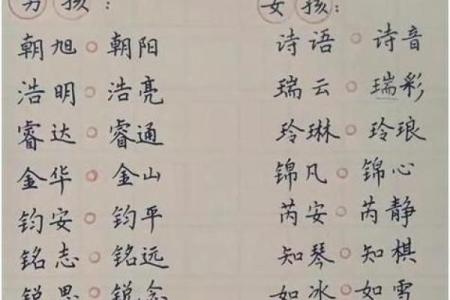 男孩： 女孩：
朝旭○朝阳 诗语○诗音
浩明○浩亮 瑞云○瑞彩
睿达○睿通 玲琳○玲琅
金华○金山 锦凡○锦心
钧安○钧平 芮安○芮静
铭志○铭远 知琴○知棋
锐思○锐念 如冰○如雪